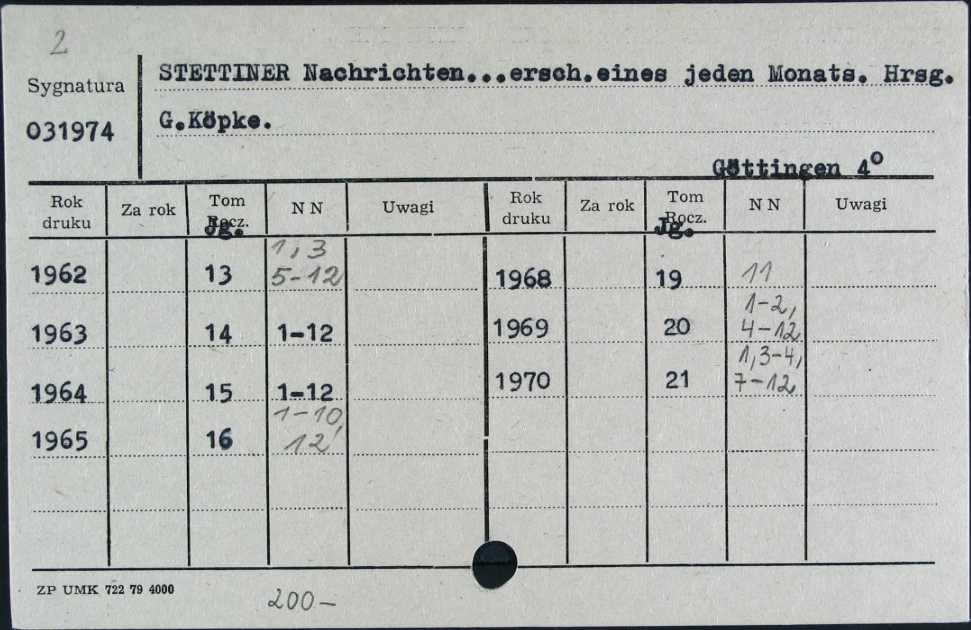 2
Sygnatura
031974
STETTINER Nachrichten...ersch.eines jeden Monats. Hrsg.
G.Köpke.
Göttingen 4°
Rok druku Za rok Tom Rocz. Jg. N N Uwagi Rok druku Za rok Tom Rocz. Jg. N N Uwagi
1962 13 1,3 5-12 1968 19 11
1963 14 1-12 1969 20 1-2, 4-12
1964 15 1-12 1970 21 1,3-4, 7-12
1965 16 1-10, 12
ZP UMK 722 79 4000
200-